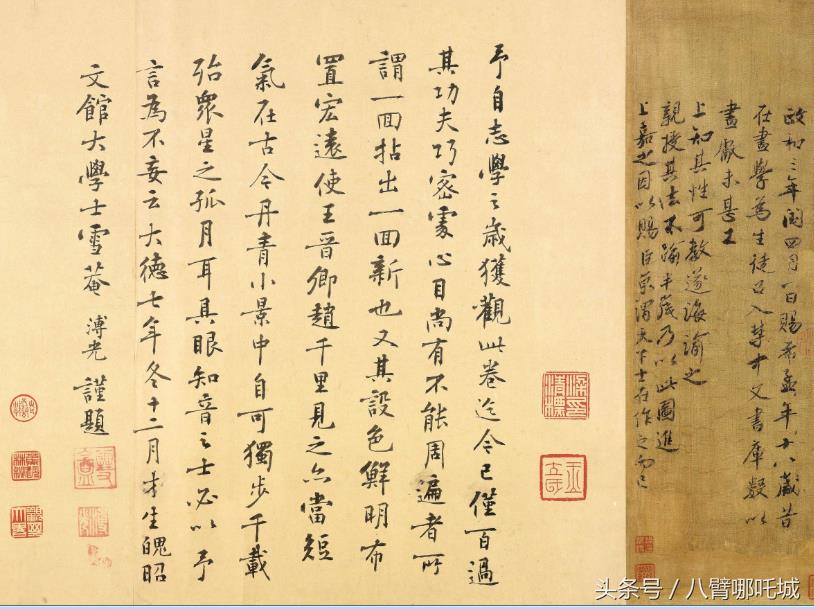 政和三年閏四月一日賜希孟年十八歲昔
在畫學為生徒召入禁中文書庫數以
畫獻未甚工
上知其性可教遂誨諭之
親授其法不踰半歲乃以此圖進
上嘉之因以賜臣京謂天下士在作之而已
予自志學之歲獲觀此卷迄今已僅百過
其功夫巧密處心目尚有不能周遍者所
謂一回拈出一回新也又其設色鮮明布
置宏遠使王晉卿趙千里見之亦當短
氣在古今丹青小景中自可獨步千載
殆眾星之孤月耳具眼知音之士必以予
言為不妄云大德七年冬十二月才生魄昭
文館大學士雪菴溥光謹題
头条号／八臂哪吒城